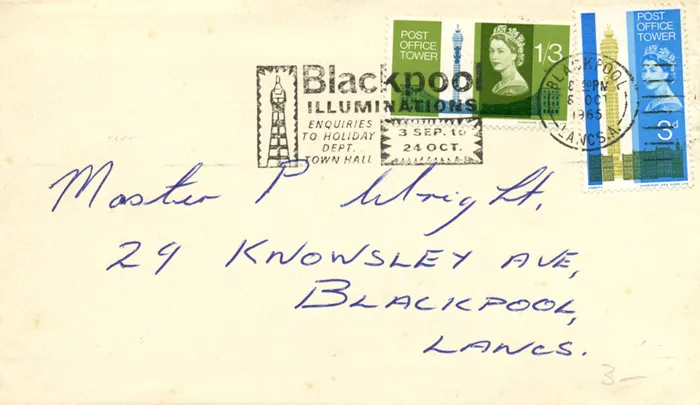 POST
OFFICE
TOWER
1/3
POST
OFFICE
TOWER
3d
Blackpool
ILLUMINATIONS
ENQUIRIES
TO HOLIDAY
DEPT.
TOWN HALL
3 SEP. to
24 OCT.
BLACKPOOL
PM
OCT
1965
LANCS.A
Master P Wright.
29 KNOWSLEY AVE,
BLACKPOOL,
LANCS.
3-